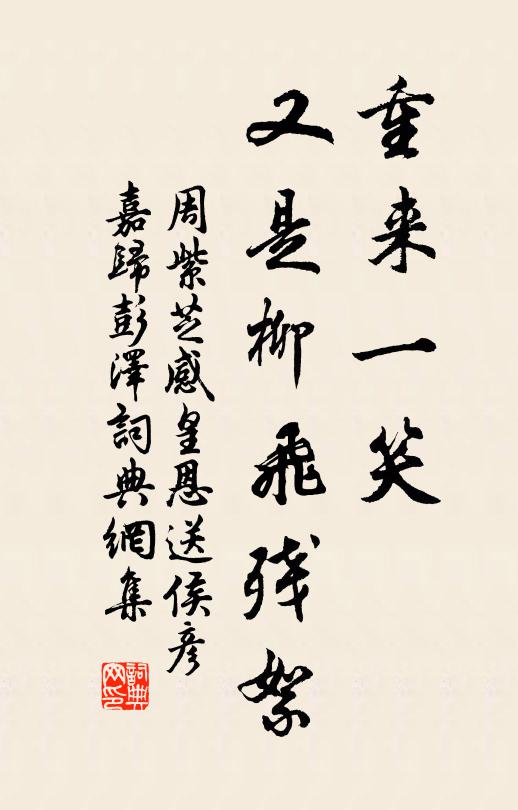 重来一笑
又是柳飛残絮
周紫芝感皇恩送侯彦
嘉歸彭澤詞典網集
詞典
网印